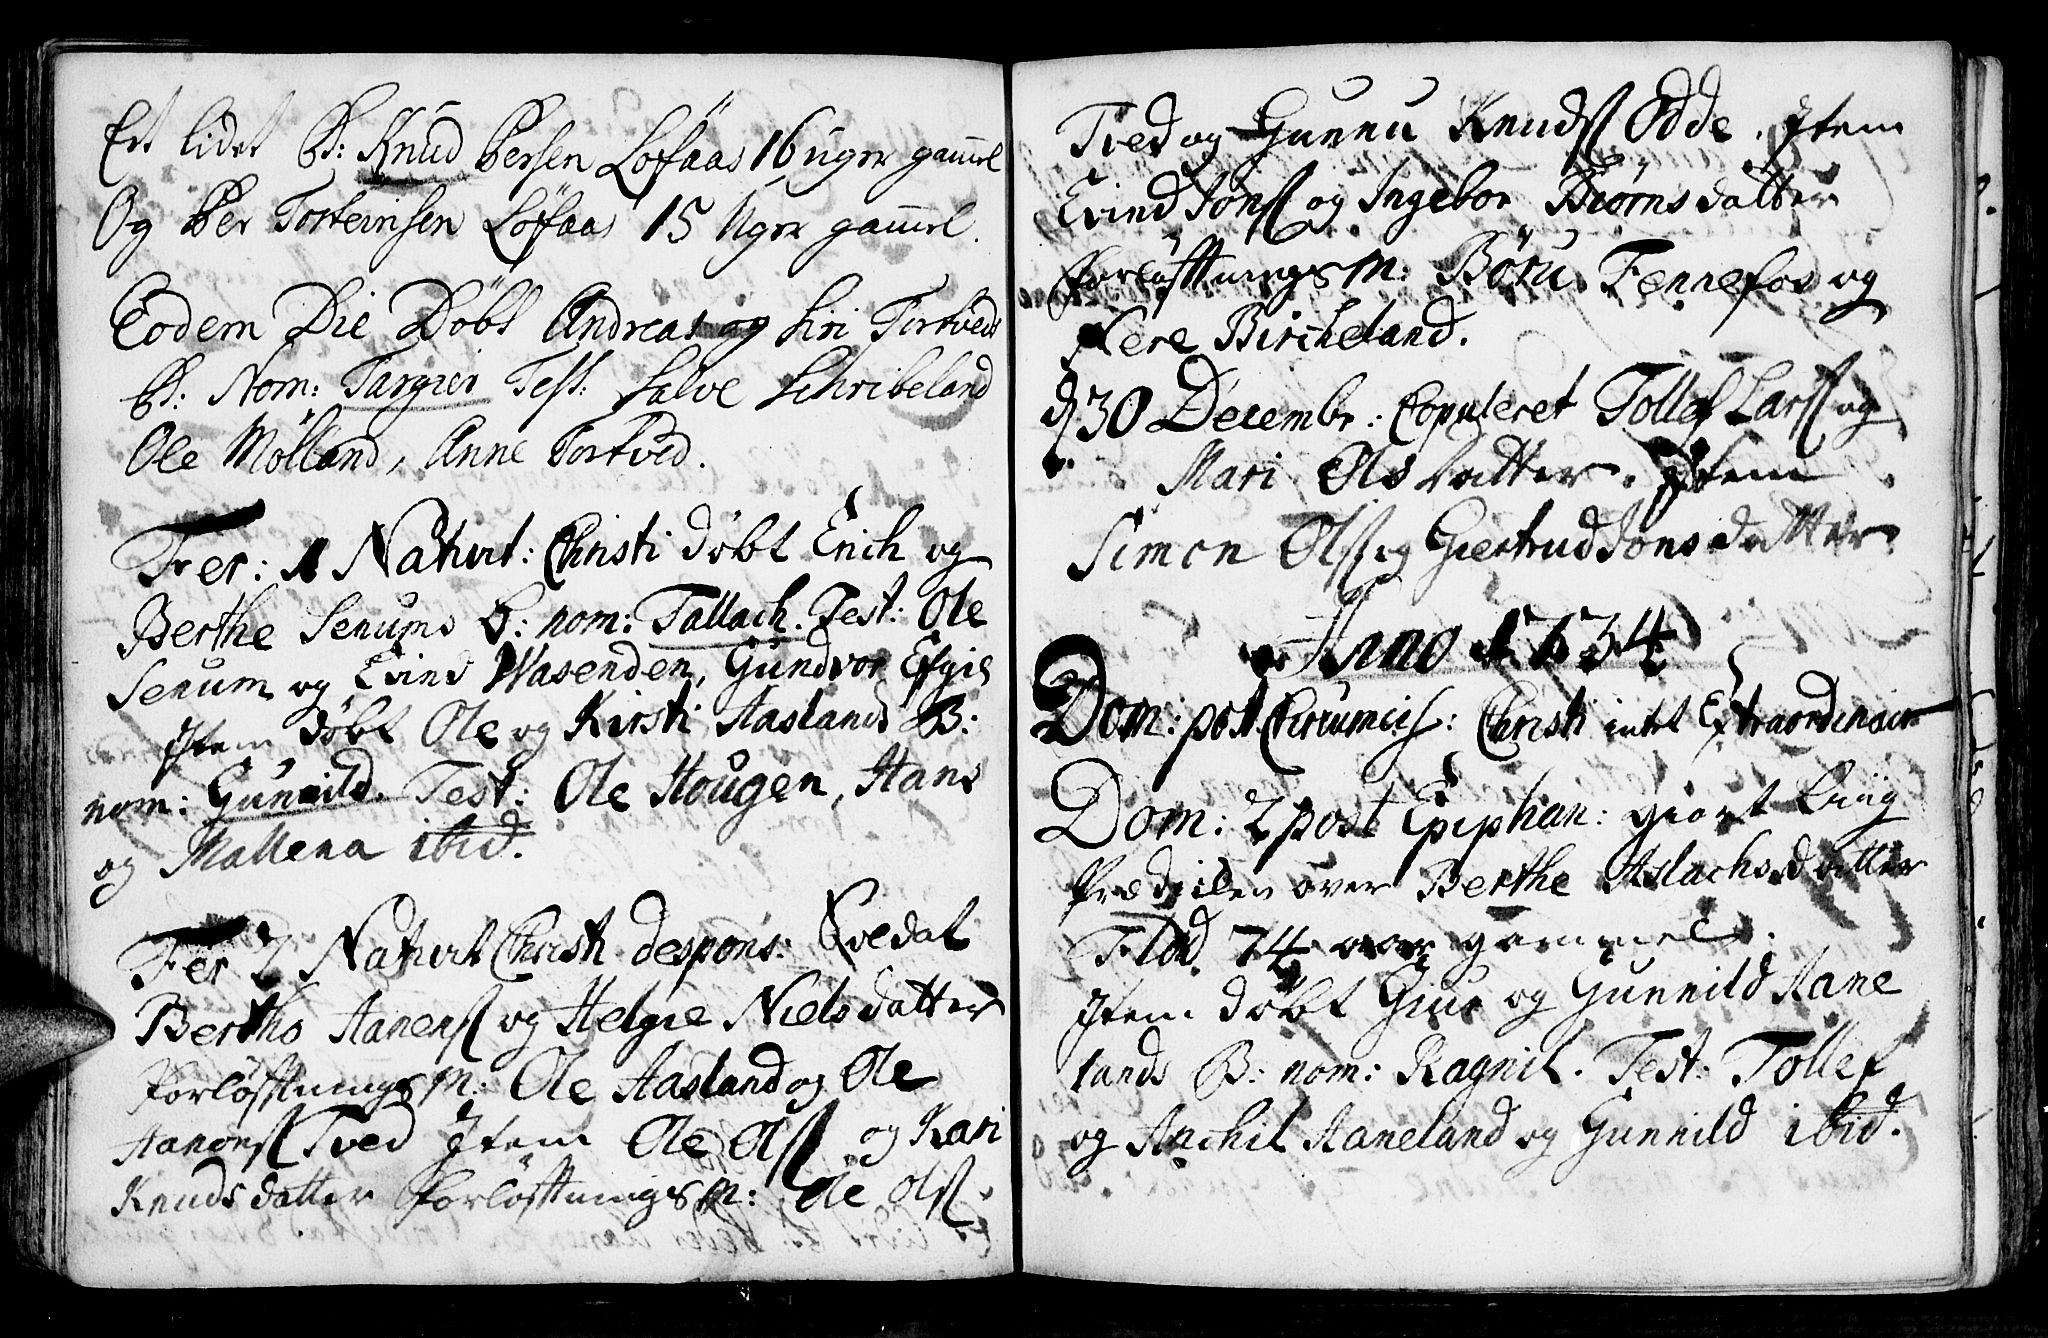 Et lidet B: Knud Persen Løfaas 16 uger gamel
Og Per Torteinsen Løfaas 15 Uger gamel.
Eodem Die Døbt Andreas og Siri Tortveds
B: Nom: Targier Test: Salve Schribeland
Ole Mølland, Anne Tortved.
Fer: 1 Nativit: Christi døbt Erich og
Berthe Senums B: nom: Tallach. Test: Ole
Senum og Evind Wasenden, Gundvor Efgie
Item døbt Ole og Kirsti Aaslands B:
nom: Gunnild. Test: Ole Hougen, Hans
og Mallena ibid.
Fer 2 Nativit Christi despons:
Aanenss og Helgie Nielsdatter
Forløfttnings M: Ole Aasland og Ole
Aanonss Tved Item Ole Olss og Kari
Knuds datter Forløfttnings M: Ole Olss
Tved og Gunnu Knudss Odde. Item
Evind Jonss og Ingebor Biørnsdatter
Forløfttnings M: Børu Fennefos og
Pere Bircheland.
d 30 Decembr: Copuleret Tollef Larss og
Mari Olsdatter. Item
Simon Olss og Giertrud Jonsdatter.
Anno 1734
Dom: post Circumcis: Christi intet Extraordinair
Dom: 2 post Epiphan: giort Liig
Prædiken over Berthe Aslachsdatter
Flod 74 aar gammel.
Item døbt Giur og Gunnild Aane
lands B: nom: Ragnil. Test: Tollef
og Anchil Aaneland og Gunnild ibid.